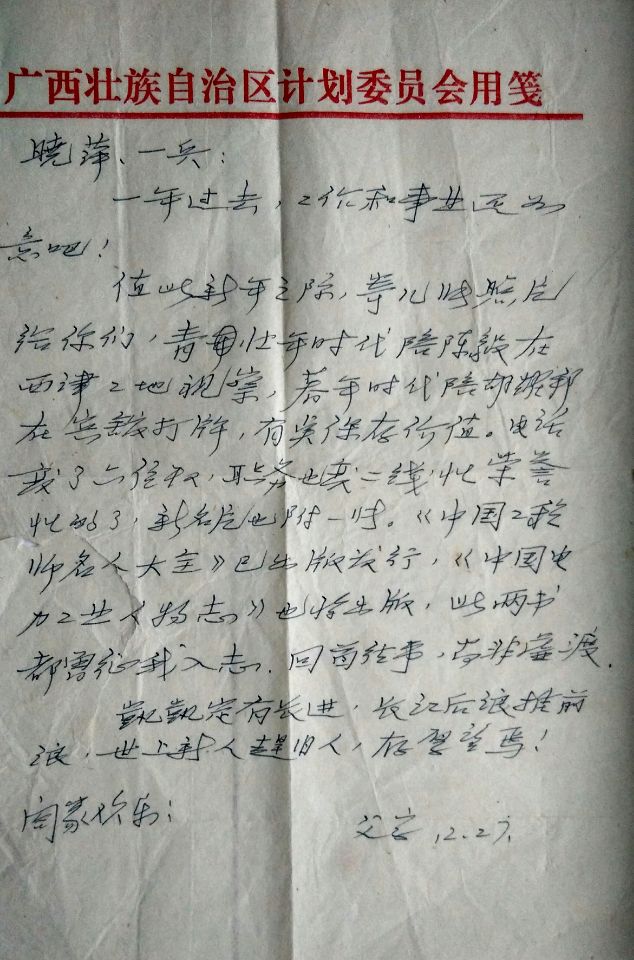 广西壮族自治区计划委员会用笺
晓萍、一兵：
一年过去，工作和事业还如
意吧！
值此新年之际，寄几张照片
给你们，青壮年时代陪陈毅在
西津工地视察，暮年时代陪胡耀邦
在宾馆打牌，有宝保存价值。电话
变了六位数，职务也变二线性荣誉
性的了，新名片也附一张。《中国工程
师名人大全》已出版发行，《中国电
力工业人物志》也将出版，此两书
都曾征我入志。回首往事，尚非虚渡。
凯凯定有长进，长江后浪推前
浪，世上新人赶旧人，存厚望焉！
阖家欢乐！
父字 12.27.